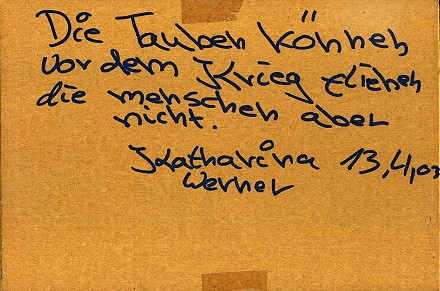 Die Tauben können
vor dem Krieg fliehen
die menschen aber
nicht.
Katharina 13,4,03
Werner